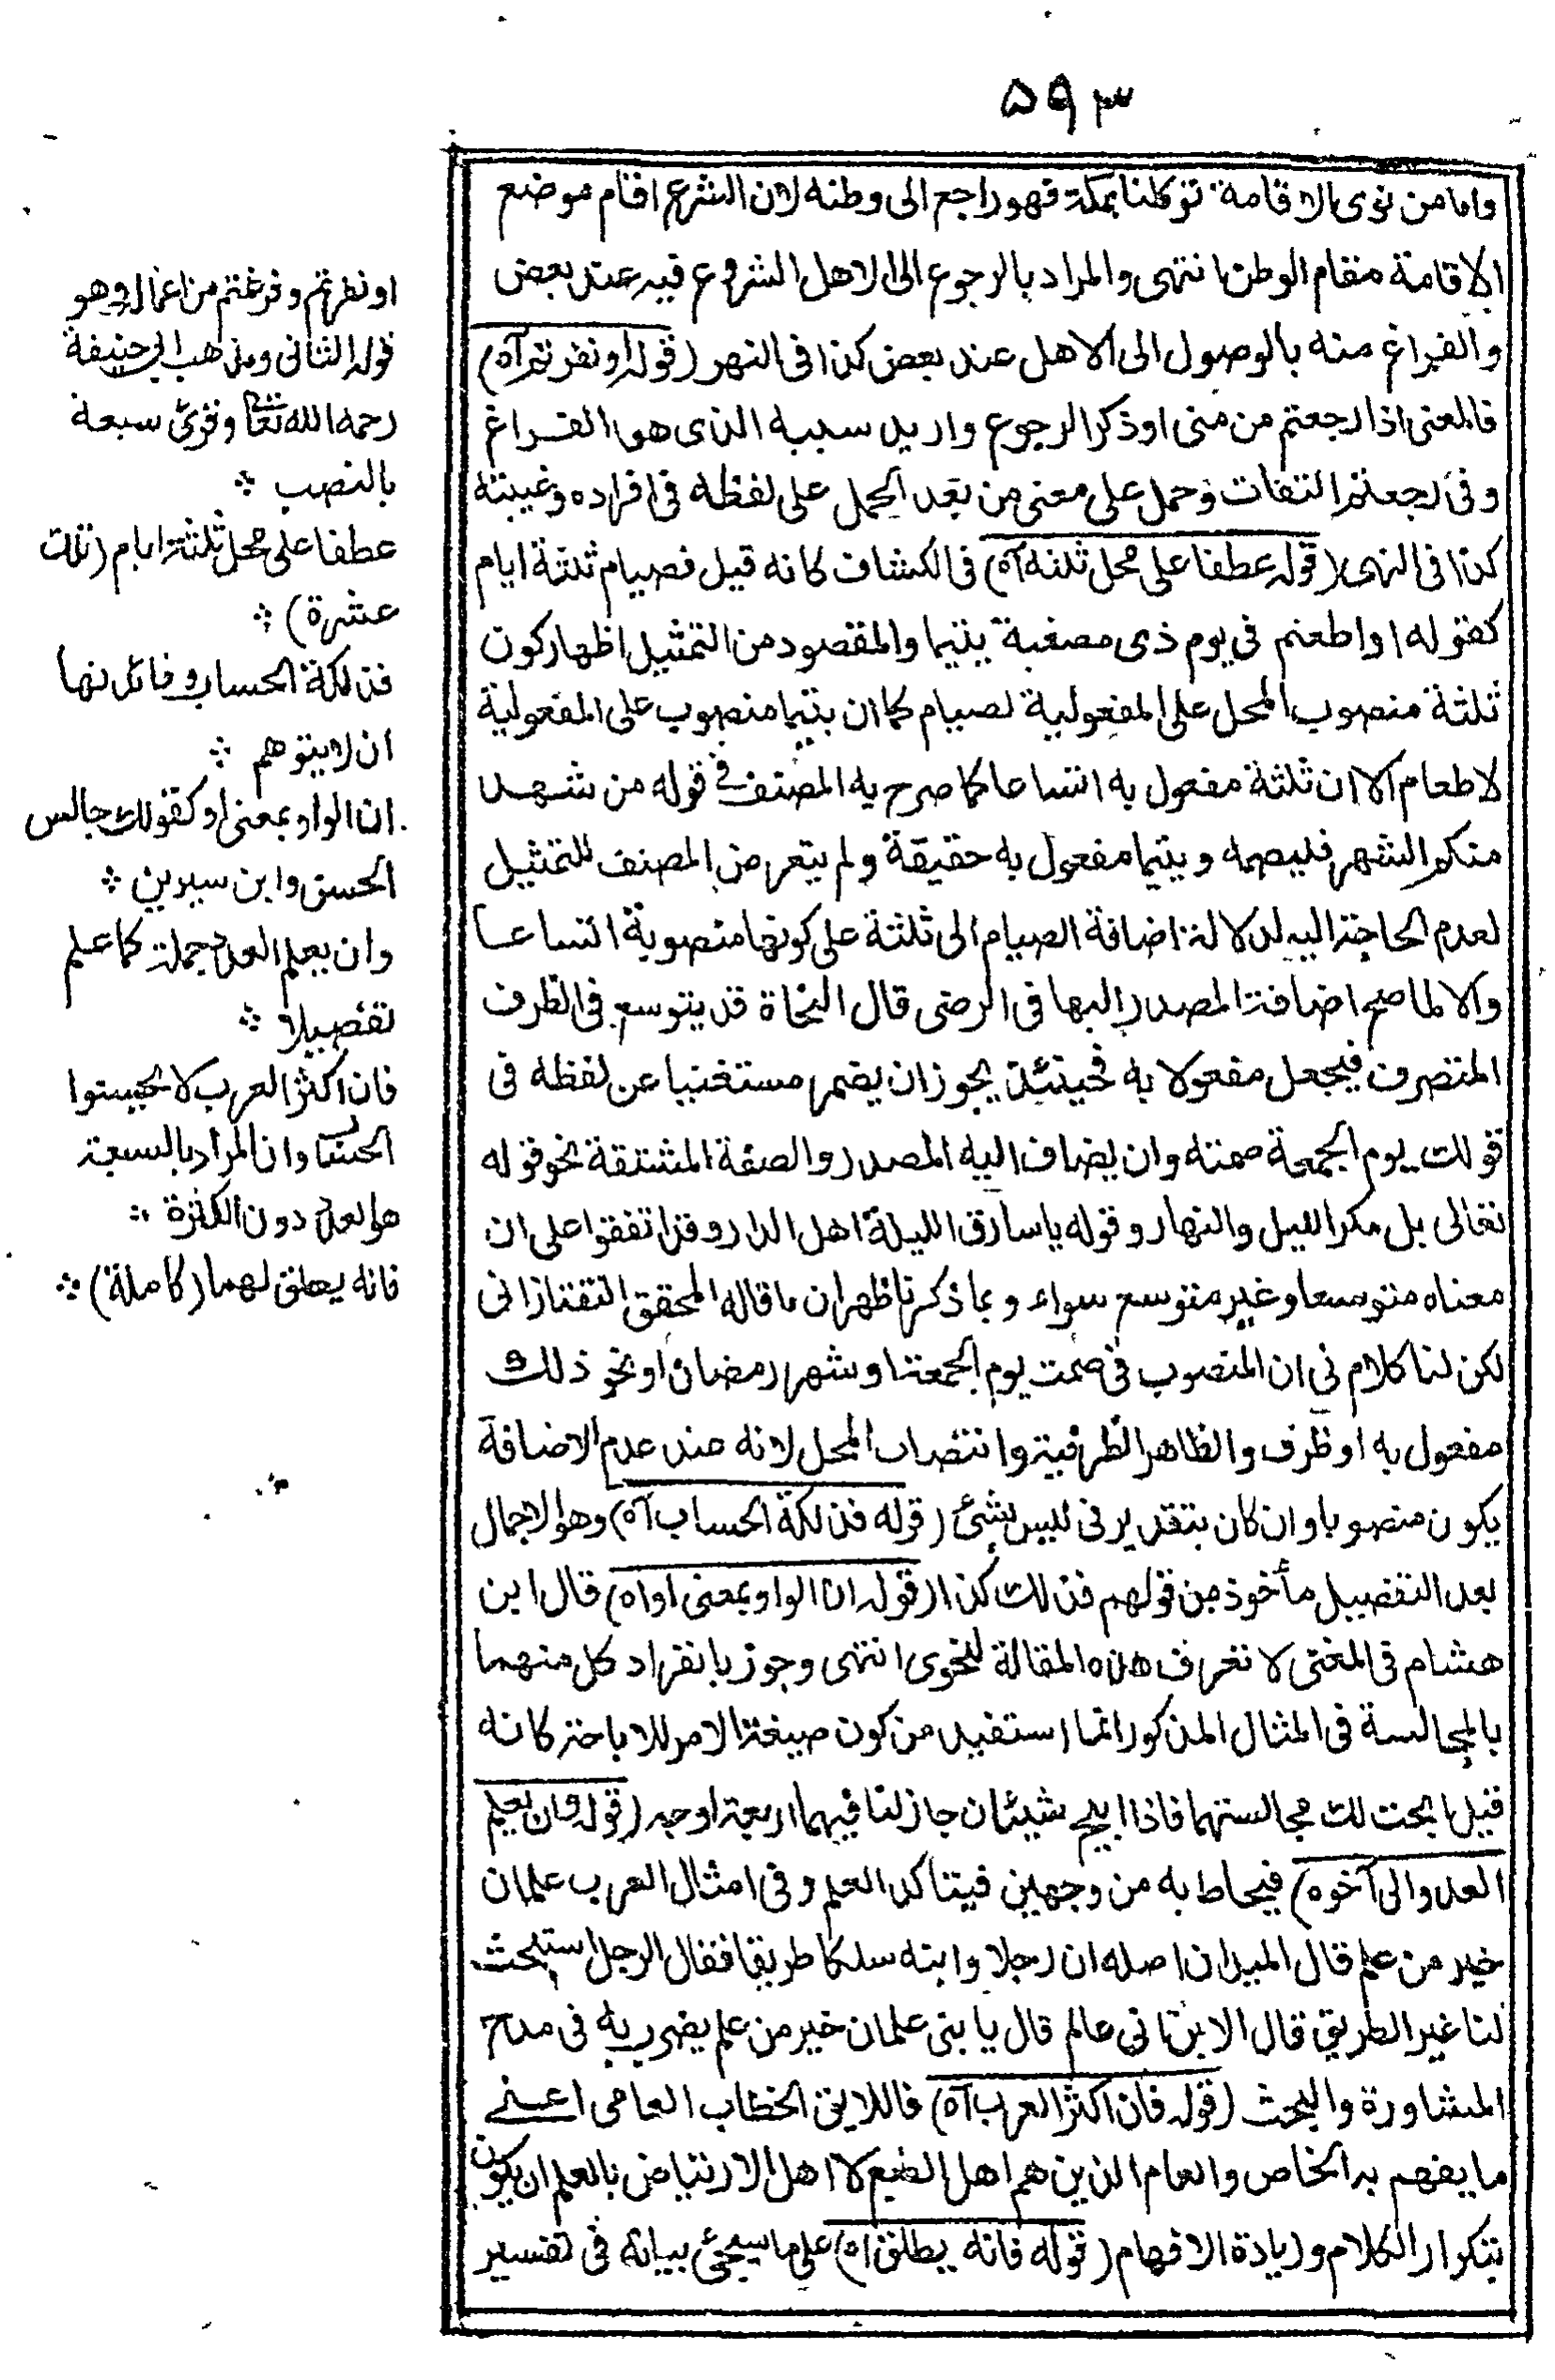 ٥٩٣
واما من نوى الاقامة توطنا بمكة فهو راجع الى وطنه لان الشرع اقام موضع
الاقامة مقام الوطن انتهى والمراد بالرجوع الى الاهل الشروع فيه عند بعض
والفراغ منه بالوصول الى الاهل عند بعض كذا فى النهر (قوله او نفرتم آه)
فالمعنى اذا رجعتم من منى او ذكر الرجوع واريد سببه الذى هو الفراغ
وفى رجعتم التفات وحمل على معنى من بعد الحمل على لفظه فى افراده وغيبته
كذا فى النهر (قوله عطفا على محل ثلثة آه) فى الكشاف كانه قيل فصيام ثلثة ايام
كقوله او اطعم فى يوم ذى مسغبة يتيما والمقصود من التمثيل اظهار كون
ثلثة منصوب المحل على المفعولية لصيام كما ان يتيما منصوب على المفعولية
لاطعام الا ان ثلثة مفعول به اتساعا كما صرح به المصنف فى قوله من شهد
منكم الشهر فليصمه ويتيما مفعول به حقيقة ولم يتعرض المصنف للتمثيل
لعدم الحاجة اليه لدلالة اضافة الصيام الى ثلثة على كونها منصوبة اتساعا
والا لما صح اضافة المصدر اليها فى الرضى قال النحاة قد يتوسع فى الظرف
المتصرف فيجعل مفعولا به فحينئذ يجوز ان يضمر مستغنيا عن لفظه فى
قولك يوم الجمعة صمته وان يضاف اليه المصدر والصفة المشتقة نحو قوله
تعالى بل مكر الليل والنهار وقوله يا سارق الليلة اهل الدار وقد اتفقوا على ان
معناه متوسعا وغير متوسع سواء وبما ذكرنا ظهر ان ما قاله المحقق التفتازانى
لكن لنا كلام فى ان المنصوب فى صمت يوم الجمعة او شهر رمضان او نحو ذلك
مفعول به او ظرف والظاهر الظرفية وانتصاب المحل لانه عند عدم الاضافة
يكون منصوبا وان كان بتقدير فى ليس بشئ (قوله فذلكة الحساب آه) وهو الاجمال
بعد التفصيل مأخوذ من قولهم فذلك كذا (قوله ان الواو بمعنى او اه) قال ابن
هشام فى المغنى لا تعرف هذه المقالة لنحوى انتهى وجوز بانفراد كل منهما
بالمجالسة فى المثال المذكور انما استفيد من كون صيغة الامر للاباحة كانه
قيل ابحت لك مجالستهما فاذا ابيح شيئان جاز لنا فيهما اربعة اوجه (قوله وان يعلم
العدد الى آخره) فيحاط به من وجهين فيتاكد العلم وفى امثال العرب علمان
خير من علم قال الميدان اصله ان رجلا وابنه سلكا طريقا فقال الرجل استبحث
لنا غير الطريق قال الابن انى عالم قال يا بنى علمان خير من علم يضرب به فى مدح
المشاورة والبحث (قوله فان اكثر العرب آه) فاللايق الخطاب العامى اعنى
ما يفهم به الخاص والعام الذين هم اهل الطبع لا اهل الارتياض بالعلم ان يكون
بتكرار الكلام وزيادة الافهام (قوله فانه يطلق اه) على ما سيجئ بيانه فى تفسير
او نفرتم وفرغتم من اعماله وهو
قوله الثانى ومذهب ابى حنيفة
رحمه الله تعا وقرئ سبعة
بالنصب ÷
عطفا على محل ثلثة ايام (تلك
عشرة) ÷
فذلكة الحساب وفائدتها
ان لا يتوهم ÷
ان الواو بمعنى او كقولك جالس
الحسن وابن سيرين ÷
وان يعلم العدد جملة كما علم
تفصيلا ÷
فان اكثر العرب لا يحسنوا
الحساب وان المراد بالسبعة
هو العدد دون الكثرة ÷
فانه يطلق لهما (كاملة) ÷